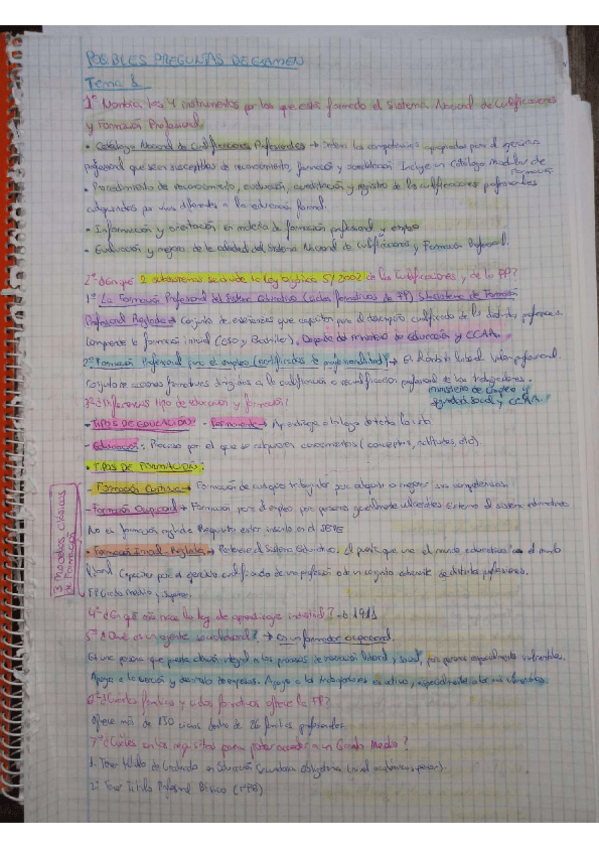 POSIBLES PREGUNTAS DE EXAMEN
Tema 1
1º Nombra los 4 instrumentos por los que está formado el Sistema Nacional de Cualificaciones
y Formación Profesional.
• Catálogo Nacional de Cualificaciones Profesionales → las competencias apropiadas para el ejercicio
profesional que sean susceptibles de reconocimiento, formación y acreditación. Incluye un Catálogo modular de
Formación
• Procedimiento de reconocimiento, evaluación, acreditación y registro de las cualificaciones profesionales
adquiridas por vías diferentes a la educación formal.
• Información y orientación en materia de formación profesional y empleo
• Evaluación y mejora de la calidad del Sistema Nacional de Cualificaciones y Formación Profesional.
2º ¿En qué 2 subsistemas se divide la Ley Orgánica 5/2002 de las Cualificaciones y de la FP?
1º La Formación Profesional del Sistema Educativo (ciclos formativos de FP) Subsistema de Formación
Profesional Reglada → Conjunto de enseñanzas que capacitan para el desempeño cualificado de las distintas profesiones.
Comprende la formación inicial (ESO y Bachiller). Depende del Ministerio de educación y CCAA.
2º Formación Profesional para el empleo (certificados de profesionalidad) → El ámbito laboral
Conjunto de acciones formativas dirigidas a la cualificación o recualificación profesional de los trabajadores.
Ministerio de Empleo y
Seguridad Social y CCAA.
3º ¿Diferencias tipo de educación y formación?
- TIPOS DE EDUCACIÓN: - Permanente → Aprendizaje a lo largo de toda la vida
- Educación: Proceso por el que se adquieren conocimientos (conceptos, actitudes, etc).
• TIPOS DE FORMACIÓN:
3 Modelos Clásicos
de Formación
- Formación Continua → Formación de cualquier trabajador para adquirir o mejorar sus competencias.
- Formación Ocupacional → Formación para el empleo, para personas generalmente externo al sistema educativo
No es formación reglada. Requisito estar inscrito en el SEPE
• Formación Inicial-Reglada → Pertenece al Sistema Educativo. El puente que une el mundo educativo con el mundo
laboral. Capacita para el ejercicio cualificado de una profesión o de un conjunto de distintas profesiones.
FP Grado Medio y Superior.
4º ¿En qué año nace la ley de aprendizaje industrial? → 1911
5º ¿Qué es un agente sociolaboral? → Es un formador ocupacional.
Es una persona que presta atención integral a los procesos de inserción laboral y social, para personas especialmente vulnerables.
Apoyo a la creación y desarrollo de empresas. Apoyo a los trabajadores en activo, especialmente
6º ¿Cuántas familias y ciclos formativos ofrece la FP?
Ofrece más de 150 ciclos dentro de 26 familias profesionales
7º ¿Cuáles son los requisitos para poder acceder a un Grado Medio?
1. Tener título de Graduado en Educación Secundaria Obligatoria
2º Tener Título Profesional Básico (FPB)